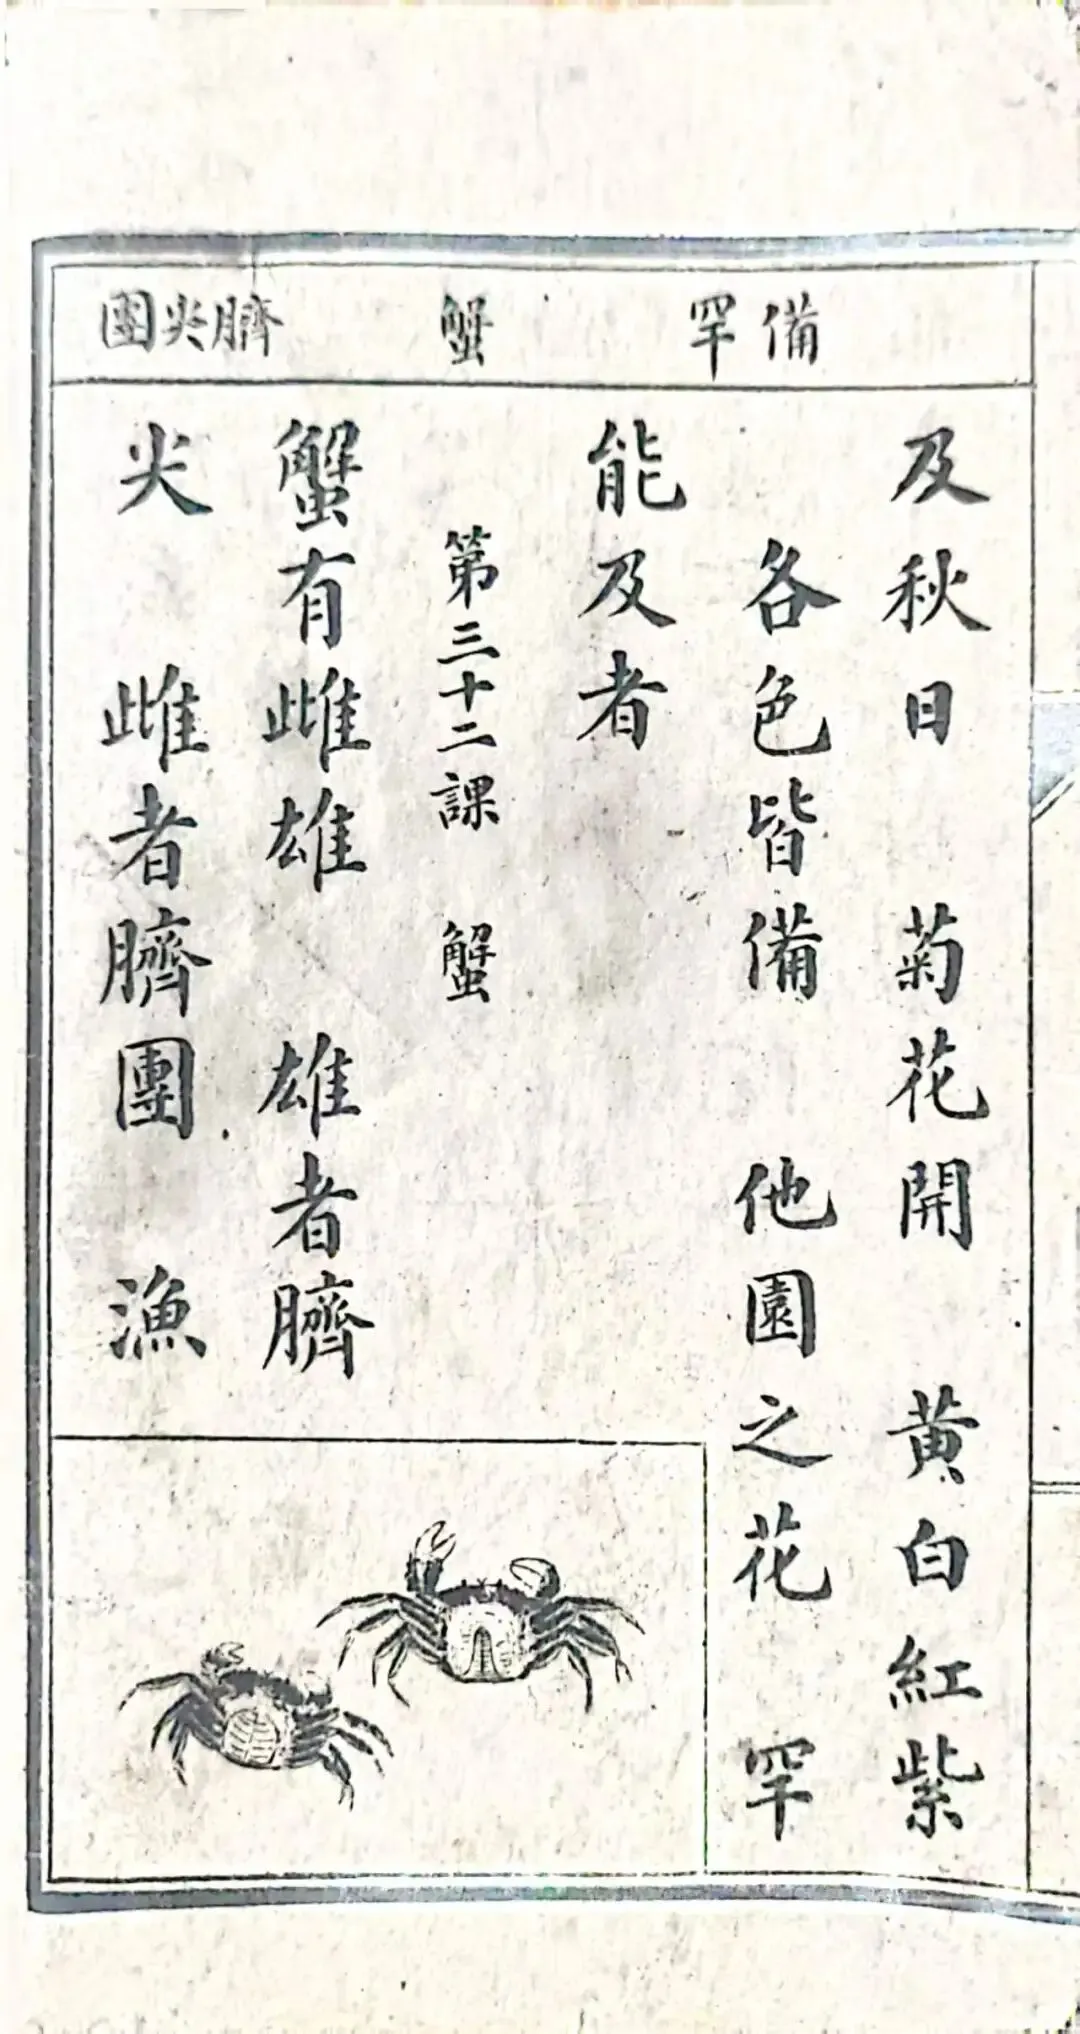 備罕
蟹
臍尖團
及秋日　菊花開　黄白紅紫
各色皆備　他園之花　罕
能及者
第三十二課　蟹
蟹有雌雄　雄者臍
尖　雌者臍團　漁